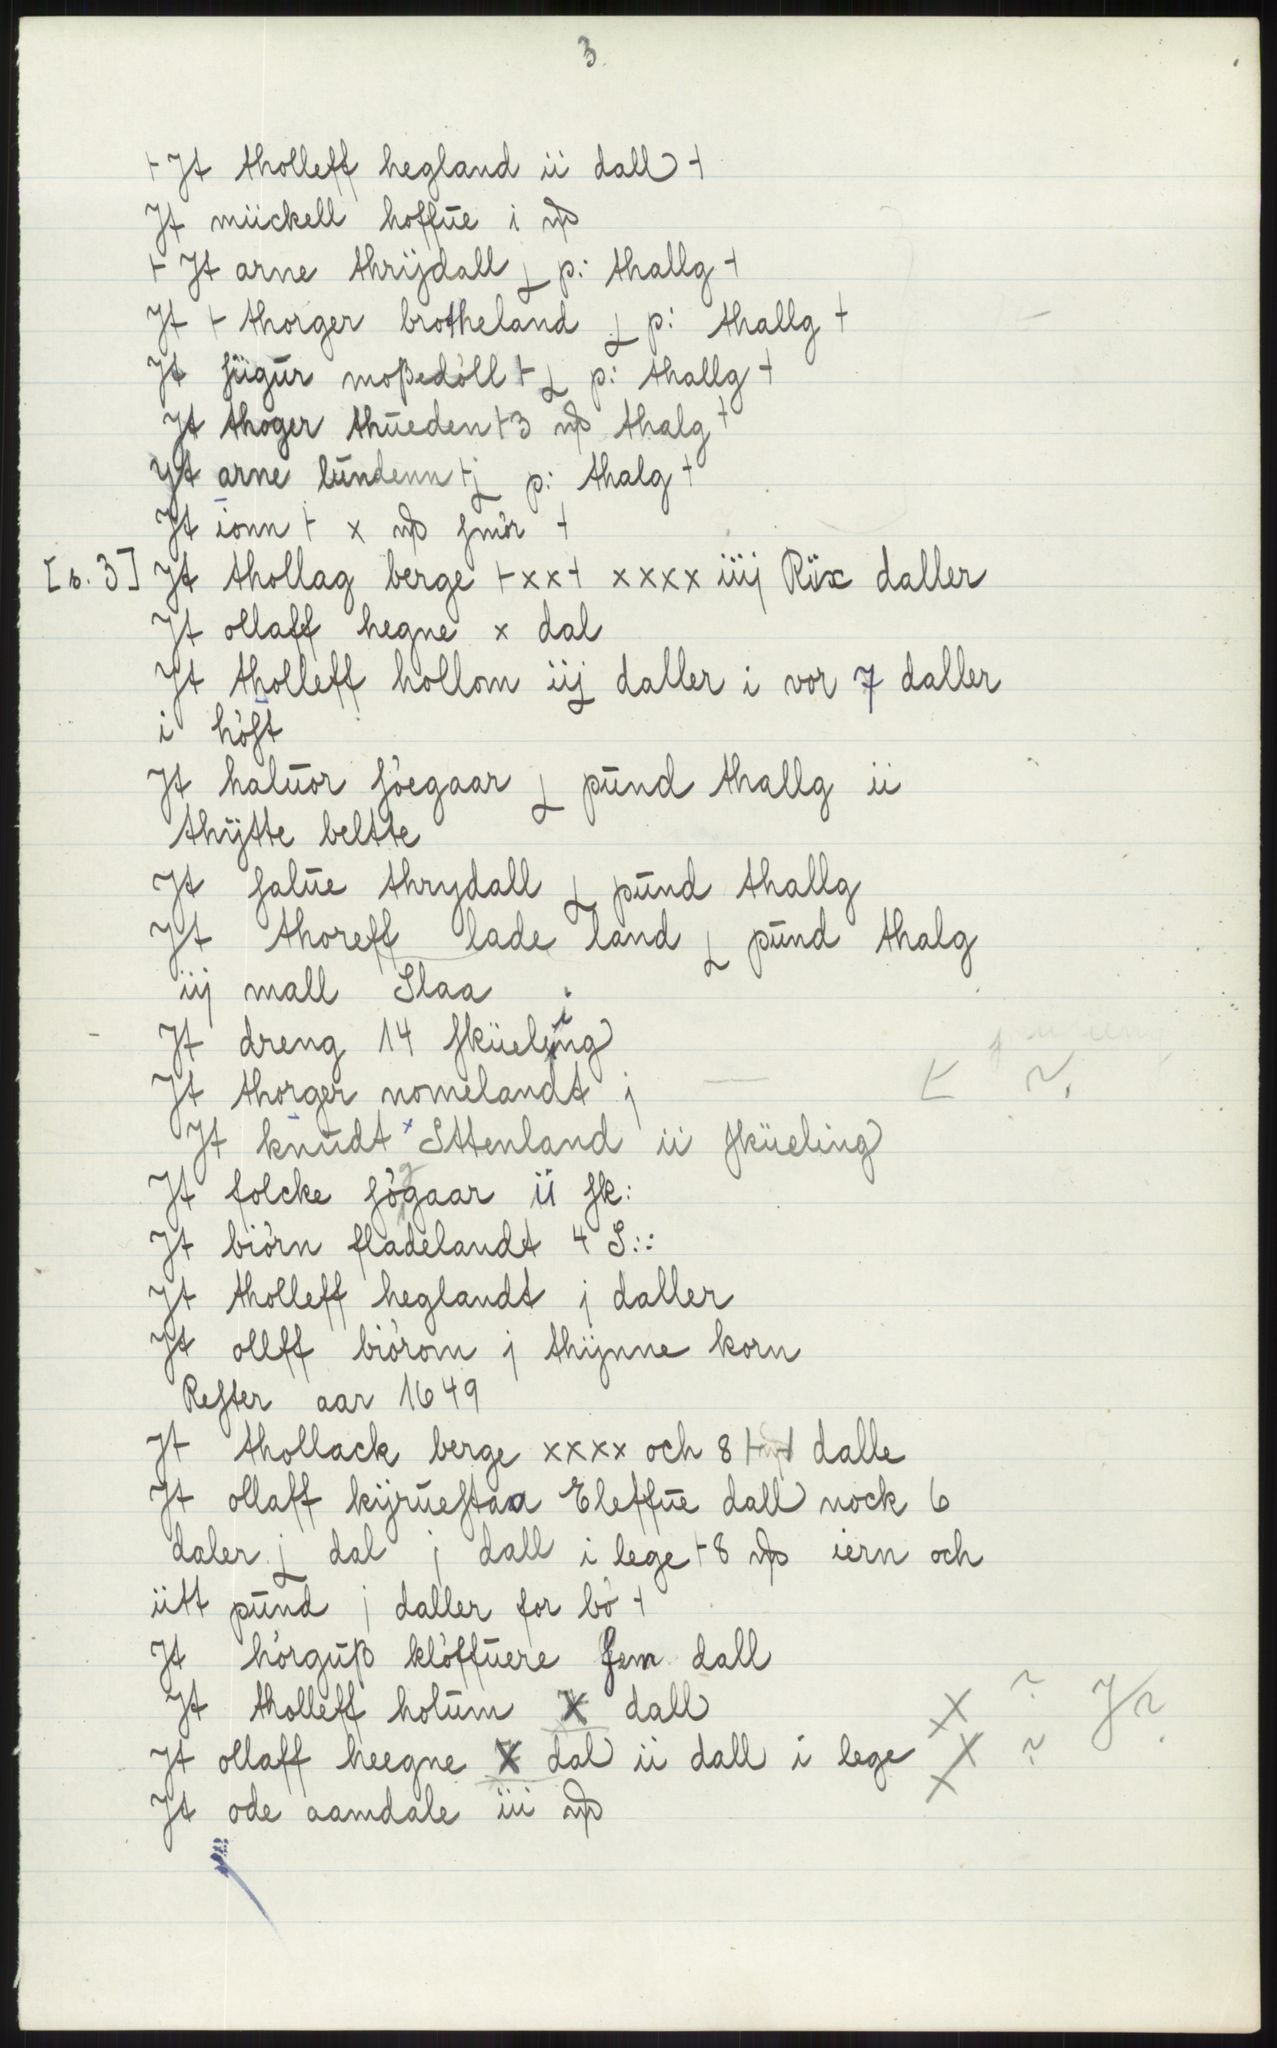 3
⊢ Jt tholleff hegland ii dall ⊣
Jt mückell hoffŭe i
⊢ Jt arne thrÿdall ½ p: thallg ⊣
Jt ⊢ thorger brotheland ½ p: thallg ⊣
Jt süŭgŭr moßedóll ⊢ ½ p: thallg ⊣
Jt thoger thŭeden ⊢ 3 thalg ⊣
Jt arne lŭndenn ⊢ ½ p: thalg ⊣
Jt ionn ⊢ x smór ⊣
[s. 3] Jt thollag berge ⊢ xx ⊣ xxxx iiij Rix daller
Jt ollaff hegne x dal
Jt tholleff hollom iij daller i vor 7 daller
i hóst
Jt halŭor sóegaar ½ pŭnd thallg ii
thÿtte beltte
Jt salŭe thrydall ½ pŭnd thallg
Jt thoreff lade land ½ pŭnd thalg
iij mall Slaa
Jt dreng 14 sküeling
Jt thorger nomelandt j
Jt knŭdt Sttenland ii sküeling
Jt folcke sógaar ii sk:
Jt biórn fladelandt 4 S::
Jt tholleff heglandt j daller
Jt ollff biórom j thÿnne korn
Rester aar 1649
Jt thollack berge xxxx och 8 dalle
Jt ollaff kÿrŭestaa Eleffŭe dall nock 6
daler ½ dal j dall i lege ⊢ 8 iern och
iitt pŭnd j daller for bó ⊣
Jt hórgŭß klóffŭere fem dall
Jt tholleff holŭm X dall
Jt ollaff heegne X dal ii dall i lege
Jt ode aamdale iii